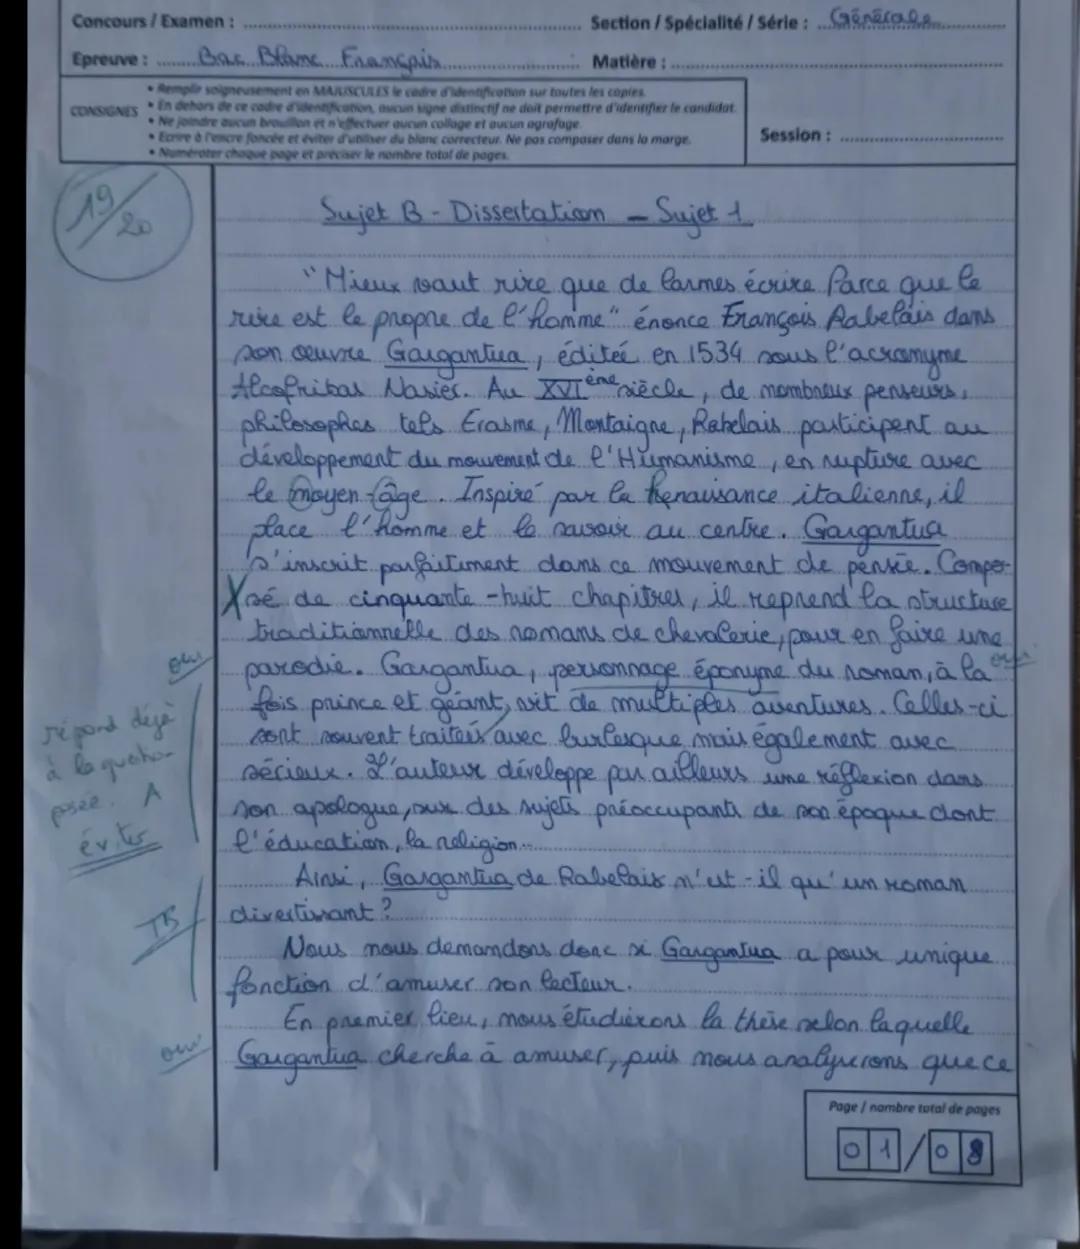 Concours / Examen : Section / Spécialité / Série : Générale
Epreuve : Bac Blanc Français Matière :
CONSIGNES
• Remplir soigneusement en MAJUSCULES le cadre d'identification sur toutes les copies.
• En dehors de ce cadre d'identification, aucun signe distinctif ne doit permettre d'identifier le candidat.
• Ne joindre aucun brouillon et n'effectuer aucun collage et aucun agrafage.
• Ecrire à l'encre foncée et éviter d'utiliser du blanc correcteur. Ne pas composer dans la marge.
• Numéroter chaque page et préciser le nombre total de pages.
Session :
19/20
Sujet B - Dissertation - Sujet 1
"Mieux vaut rire que de larmes écrire Parce que le
rire est le propre de l'homme" énonce François Rabelais dans
son œuvre Gargantua, éditée en 1534 sous l'acronyme
Alcofribas Nasier. Au XVIème siècle, de nombreux penseurs,
philosophes tels Erasme, Montaigne, Rabelais participent au
développement du mouvement de l'Humanisme, en rupture avec
le moyen-âge. Inspiré par la Renaissance italienne, il
place l'homme et le savoir au centre. Gargantua
s'inscrit parfaitement dans ce mouvement de pensée. Compo-
sé de cinquante-huit chapitres, il reprend la structure
traditionnelle des romans de chevalerie, pour en faire une
parodie. Gargantua, personnage éponyme du roman, à la
fois prince et géant, vit de multiples aventures. Celles-ci
sont souvent traités avec burlesque mais également avec
sérieux. L'auteur développe par ailleurs une réflexion dans
son apologue, sur des sujets préoccupants de son époque dont
l'éducation, la religion...
Ainsi, Gargantua de Rabelais n'est-il qu'un roman
divertissant ?
Nous nous demandons donc si Gargantua a pour unique
fonction d'amuser son lecteur.
En premier lieu, nous étudierons la thèse selon laquelle
Gargantua cherche à amuser, puis nous analyserons que ce
oui
oui
répond déjà
à la question
posée. A
éviter
TB
oui
Page / nombre total de pages
01/08